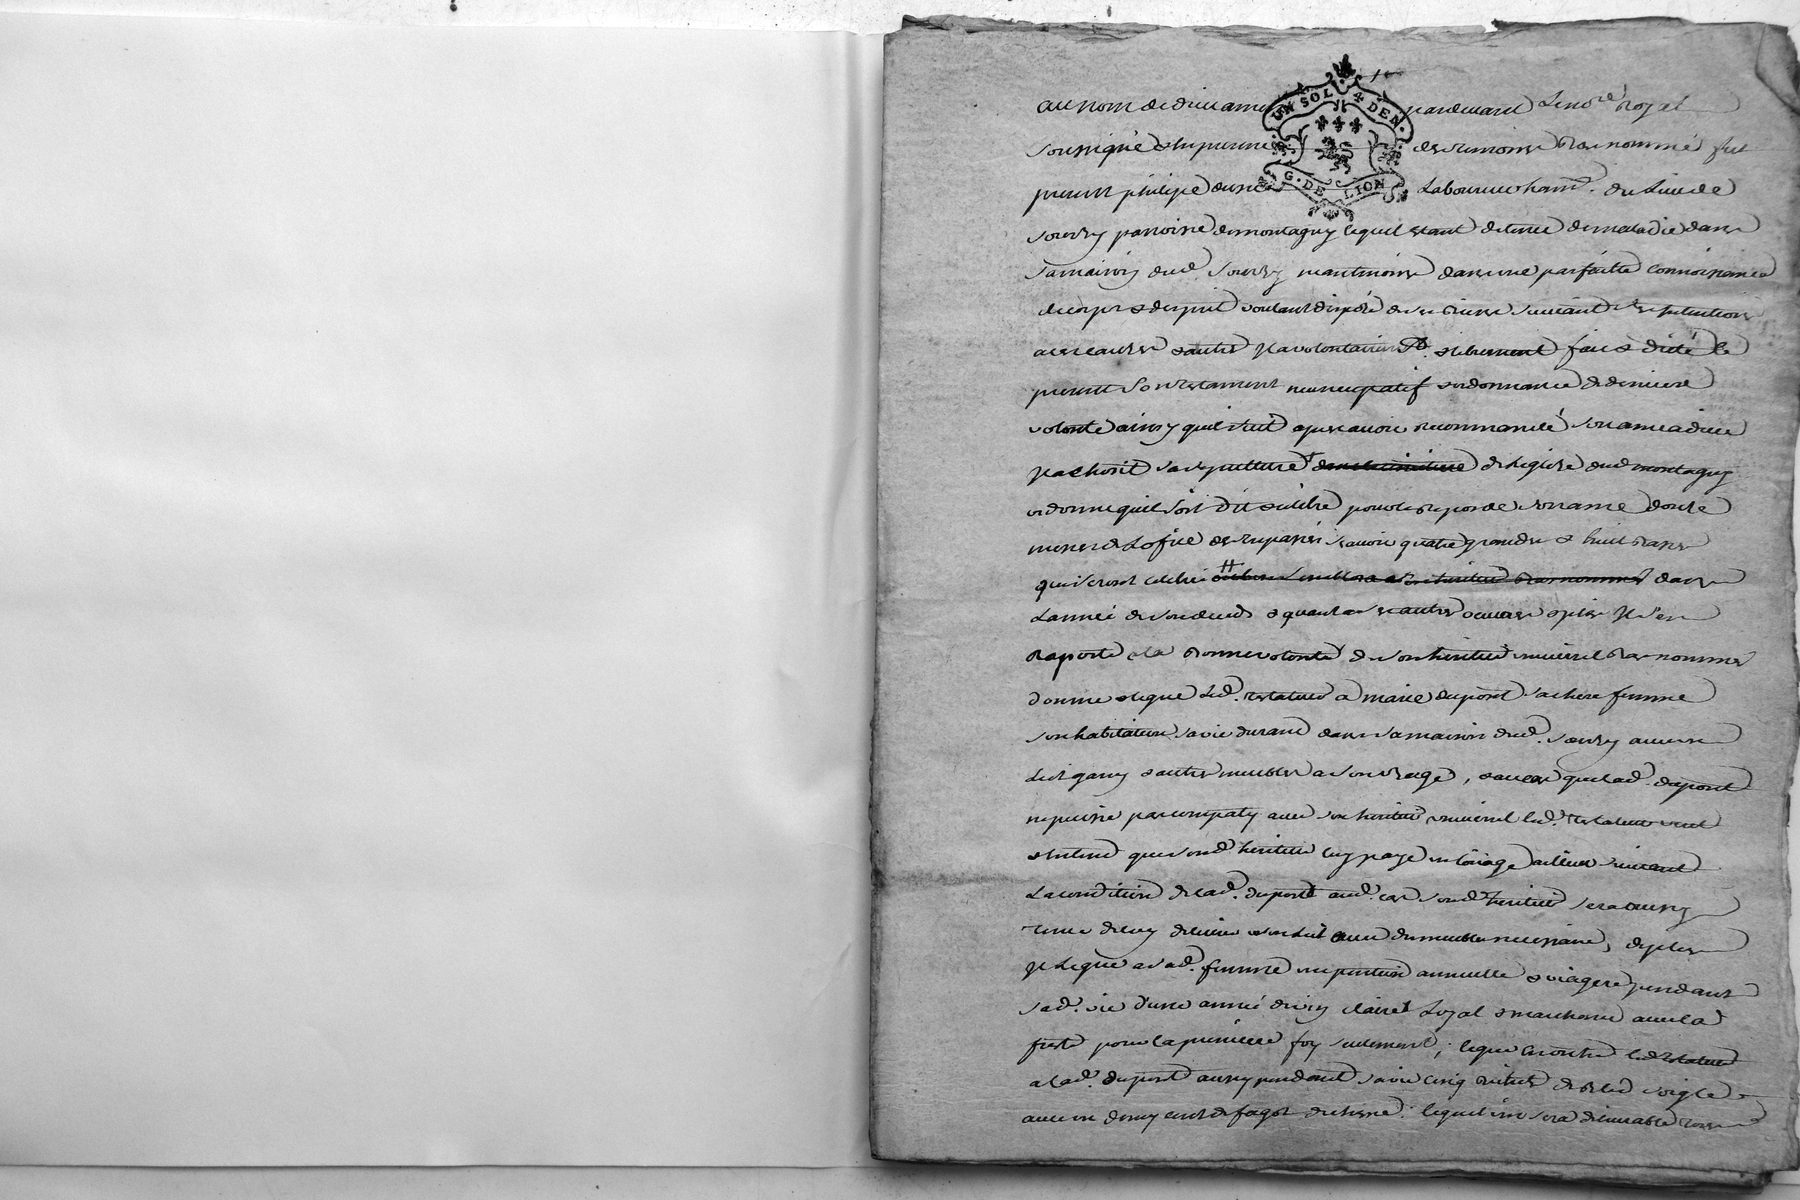 UN SOL 4 DEN.
G. DE LION
au nom de dieu amen pardevant Le no.re Royal
soussigné & en presence des temoins bas nommé fut
present philipe Laboureur hant. du Lieu de
sourzy parroisse de montagny lequel etant detenu de maladie dans
sa maison dud. sourzy neantmoins dans une parfaitte connoissance
de corps & desprit voulant disposé de ses biens suivant ses intentions
a ses causes & autres il a volontairem & librement fait & dicté le
present son testament nuncupatif & ordonnance de derniere
volonté ainsy quil suit apres avoir recommandé son ame a dieu
il a choisit sa sepulture de leglise dud montagny
ordonne quil soit dit & celebré pour le repos de son ame douze
messes de Lofice des trepassés savoir quatre grandes & huit basses
qui seront celebré dans
Lanneé de son deced & quant a ses autres oeuvres & pies il s'en
raporte a la bonne volonté de son heritier universel bas nommé
donne & legue Led. testateur a marie dupont sa chere femme
son habitation sa vie durant dans sa maison dud. sourzy avec un
Lict garny & autres meubles a son usage, & au cas que lad. dupont
ne puisse pas compaty avec son heritier universel led. testateur veut
& entend que sond heritier luy paye un loüage ailleurs suivant
La condition de lad. dupont aud. cas sond heritier sera aussy
tenu de luy delivrer son lict avec des meubles necessaire, de plus
il Legue a sad. femme une pention annuelle & viagere pendant
sad. vie d'une anneé de vin clairet Loyal & marchand avec la
futé pour la premiere foy seulement; legue en outre led testateur
a lad. dupont aussy pendant sa vie cinq bichets de bled soigle
avec un demy cent de fagot de chesne. lequel vin sera delivrable